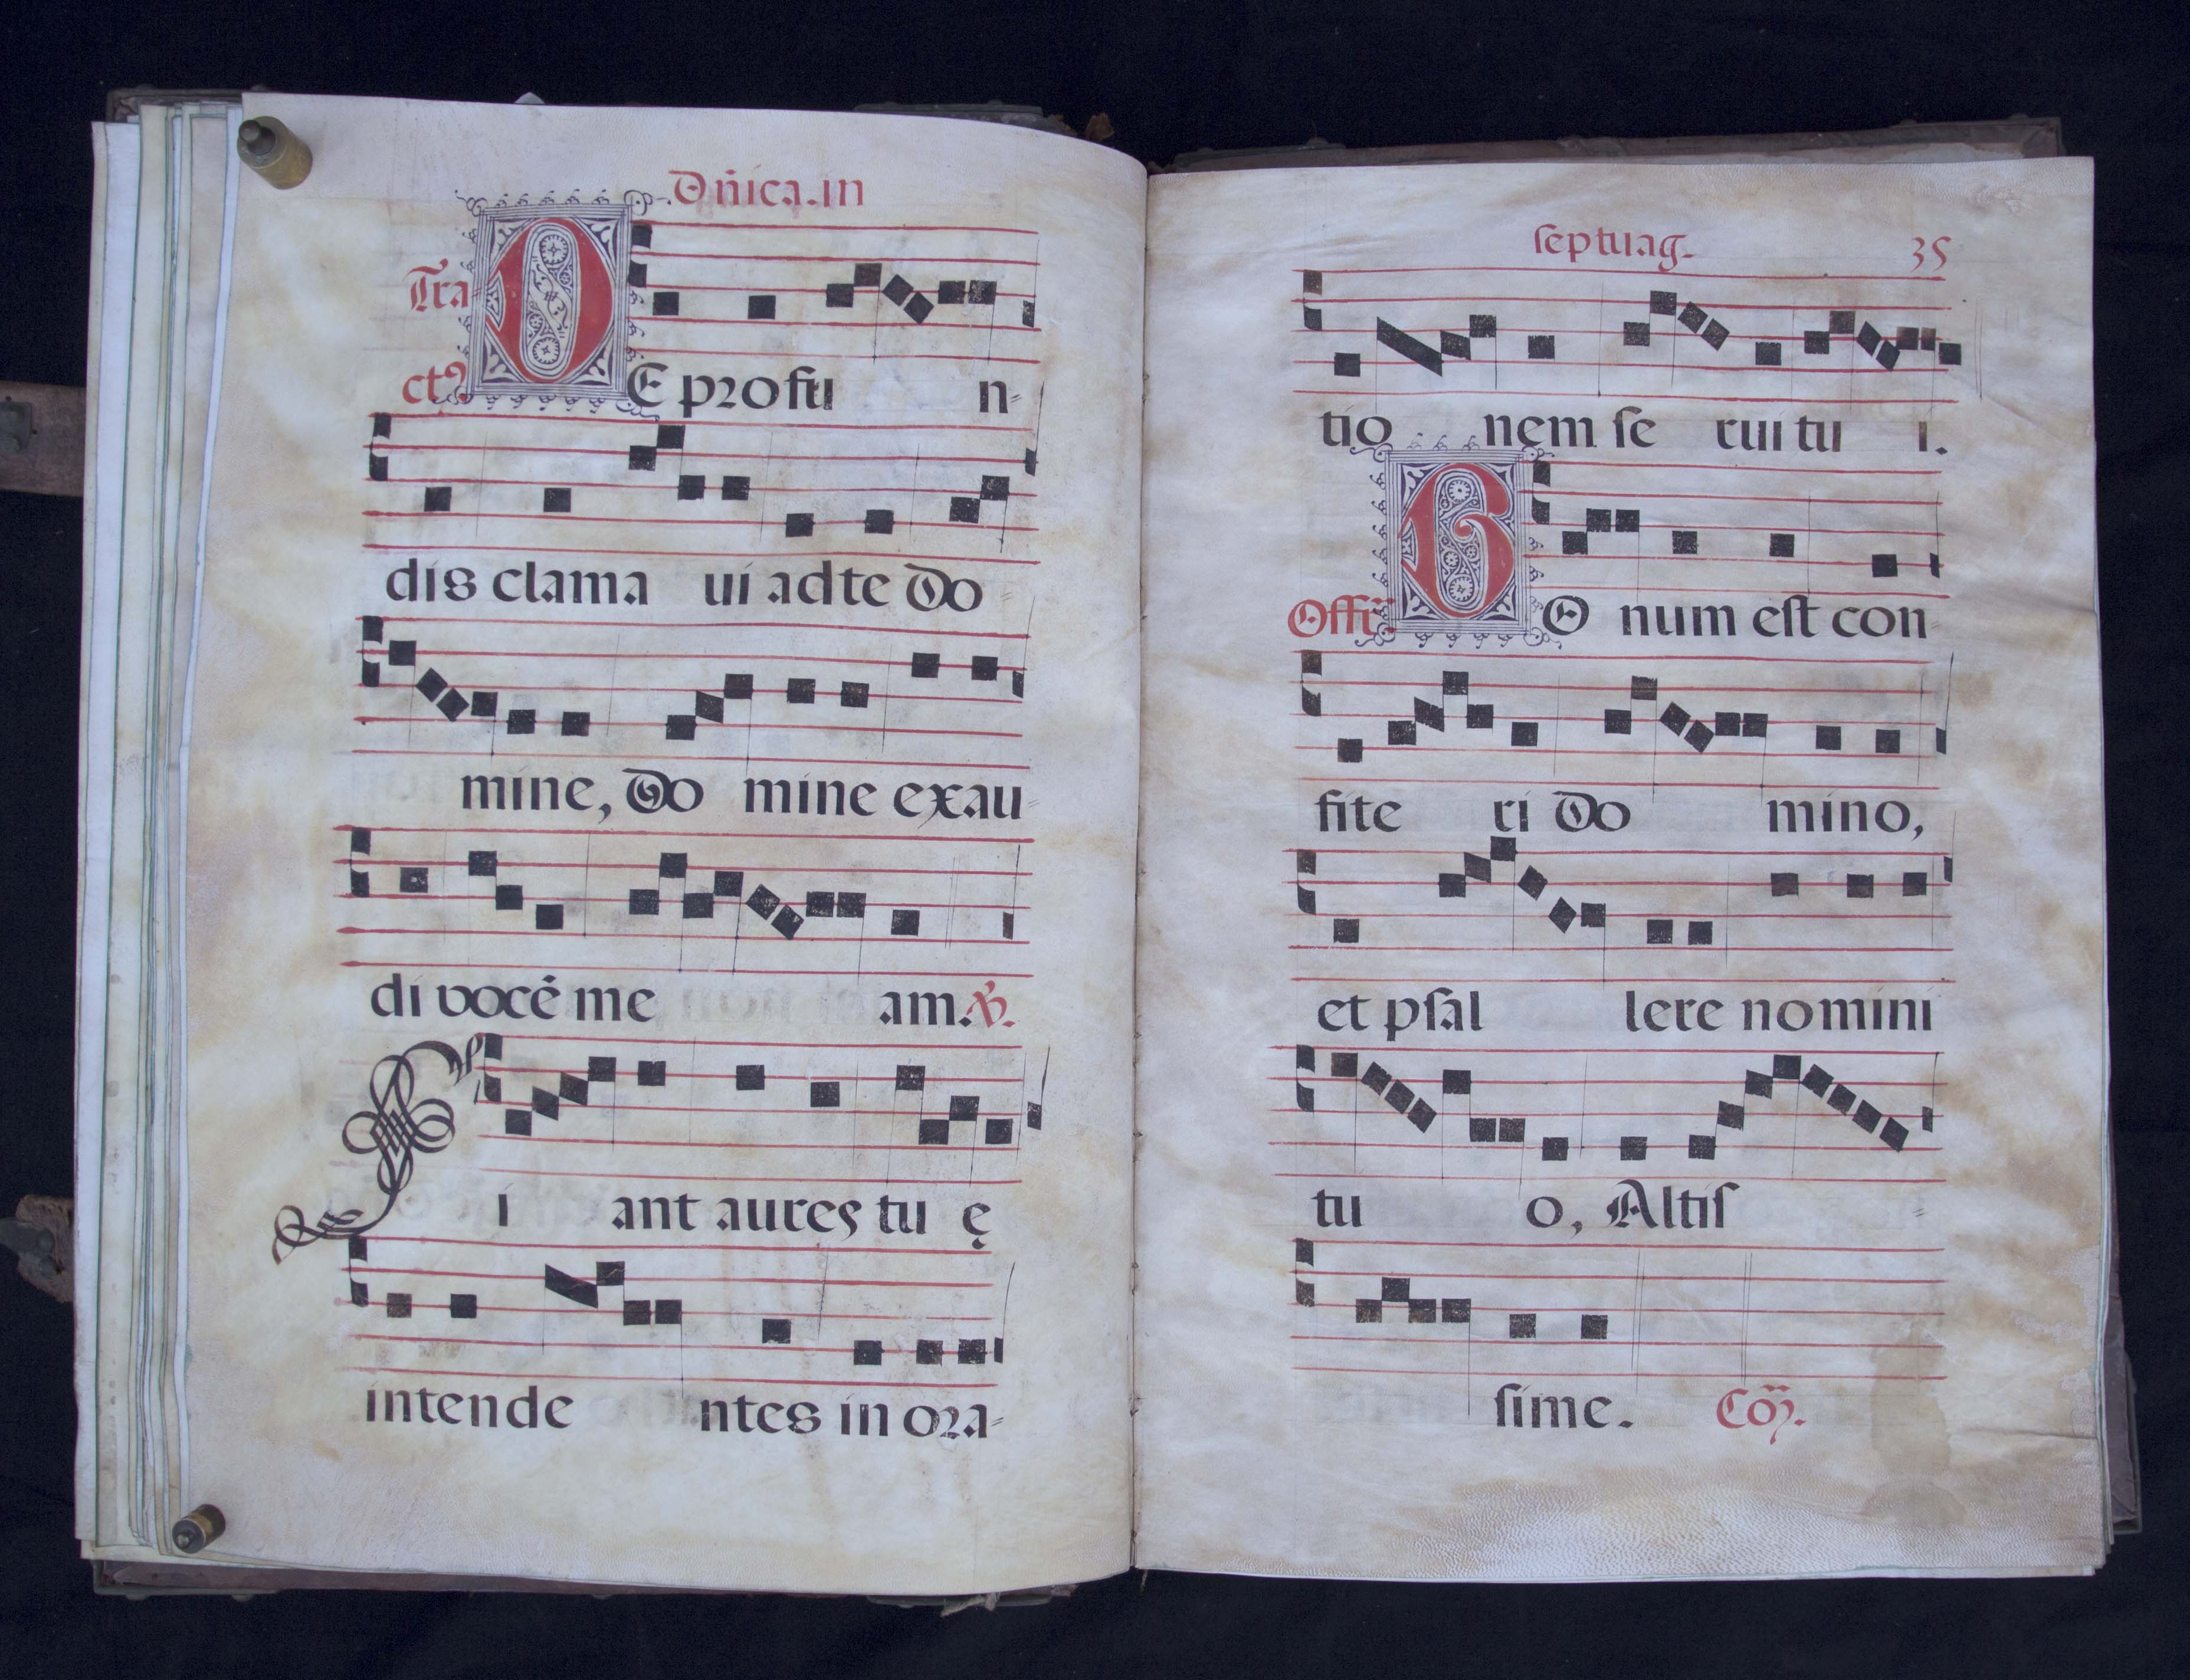 Dñica.in
Tra
ctꝰ DE profu n-
dis clama ui ad te Do-
mine, Do mine exau-
di vocē me am. ℣.
Fi ant aures tu ę
intende ntes in ora-
septuag. 35
tio nem se rui tu i.
Offῑ BO num est con-
fite ri Do mino,
et psal lere nomini
tu o, Altis-
sime. Cõ.